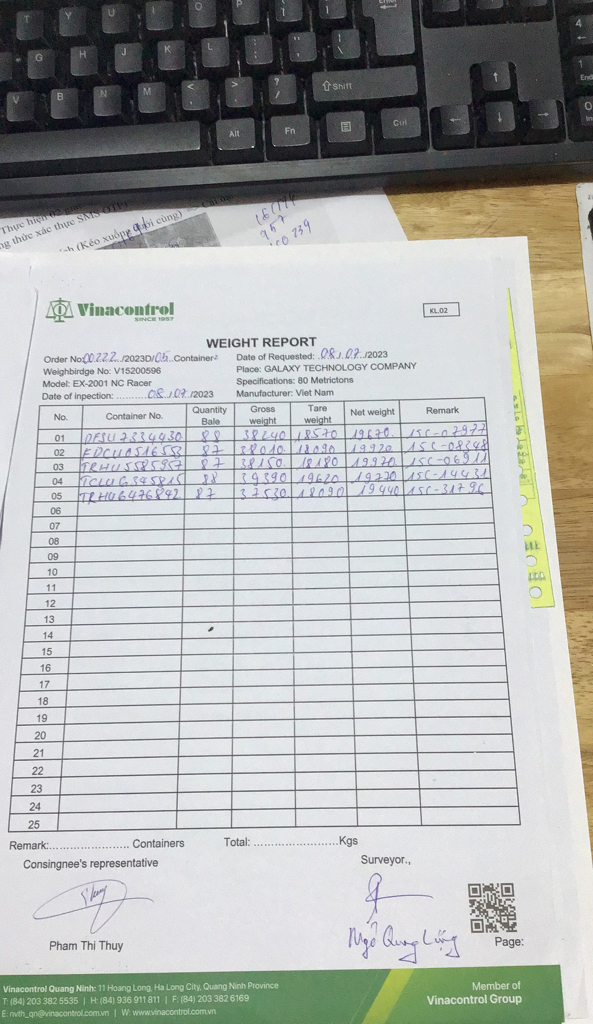 T Y U O P
G H J K L
V B N M < >
Enter
⇧Shift
Alt Fn Ctrl
End
Thực hiện 02
thức xác thực SMS OTP
(Kéo xuống cuối cùng)
957
239
Vinacontrol
SINCE 1957
KL.02
WEIGHT REPORT
Order No:00222/2023D/05 Container
Date of Requested: 08/07/2023
Weighbirdge No: V15200596
Place: GALAXY TECHNOLOGY COMPANY
Model: EX-2001 NC Racer
Specifications: 80 Metrictons
Date of inpection: ..........08/07/2023
Manufacturer: Viet Nam
No. Container No. Quantity Bale Gross weight Tare weight Net weight Remark
01 DFSU7334430 88 38240 18570 19670 15C-07977
02 FDCU0516553 87 38010 18090 19920 15C-08348
03 TRHU5585957 87 38150 18180 19970 15C-06911
04 TCLU6345815 88 39390 19620 19770 15C-14431
05 TRHU6476842 87 37530 18090 19440 15C-31796
06
07
08
09
10
11
12
13
14
15
16
17
18
19
20
21
22
23
24
25
Remark:........................ Containers Total: ..........................Kgs
Consingnee's representative
Surveyor.,
Pham Thi Thuy
Ngô Quang Lượng
Page:
Vinacontrol Quang Ninh: 11 Hoang Long, Ha Long City, Quang Ninh Province
T: (84) 203 382 5535 | H: (84) 936 911 811 | F: (84) 203 382 6169
E: nvth_qn@vinacontrol.com.vn | W: www.vinacontrol.com.vn
Member of
Vinacontrol Group